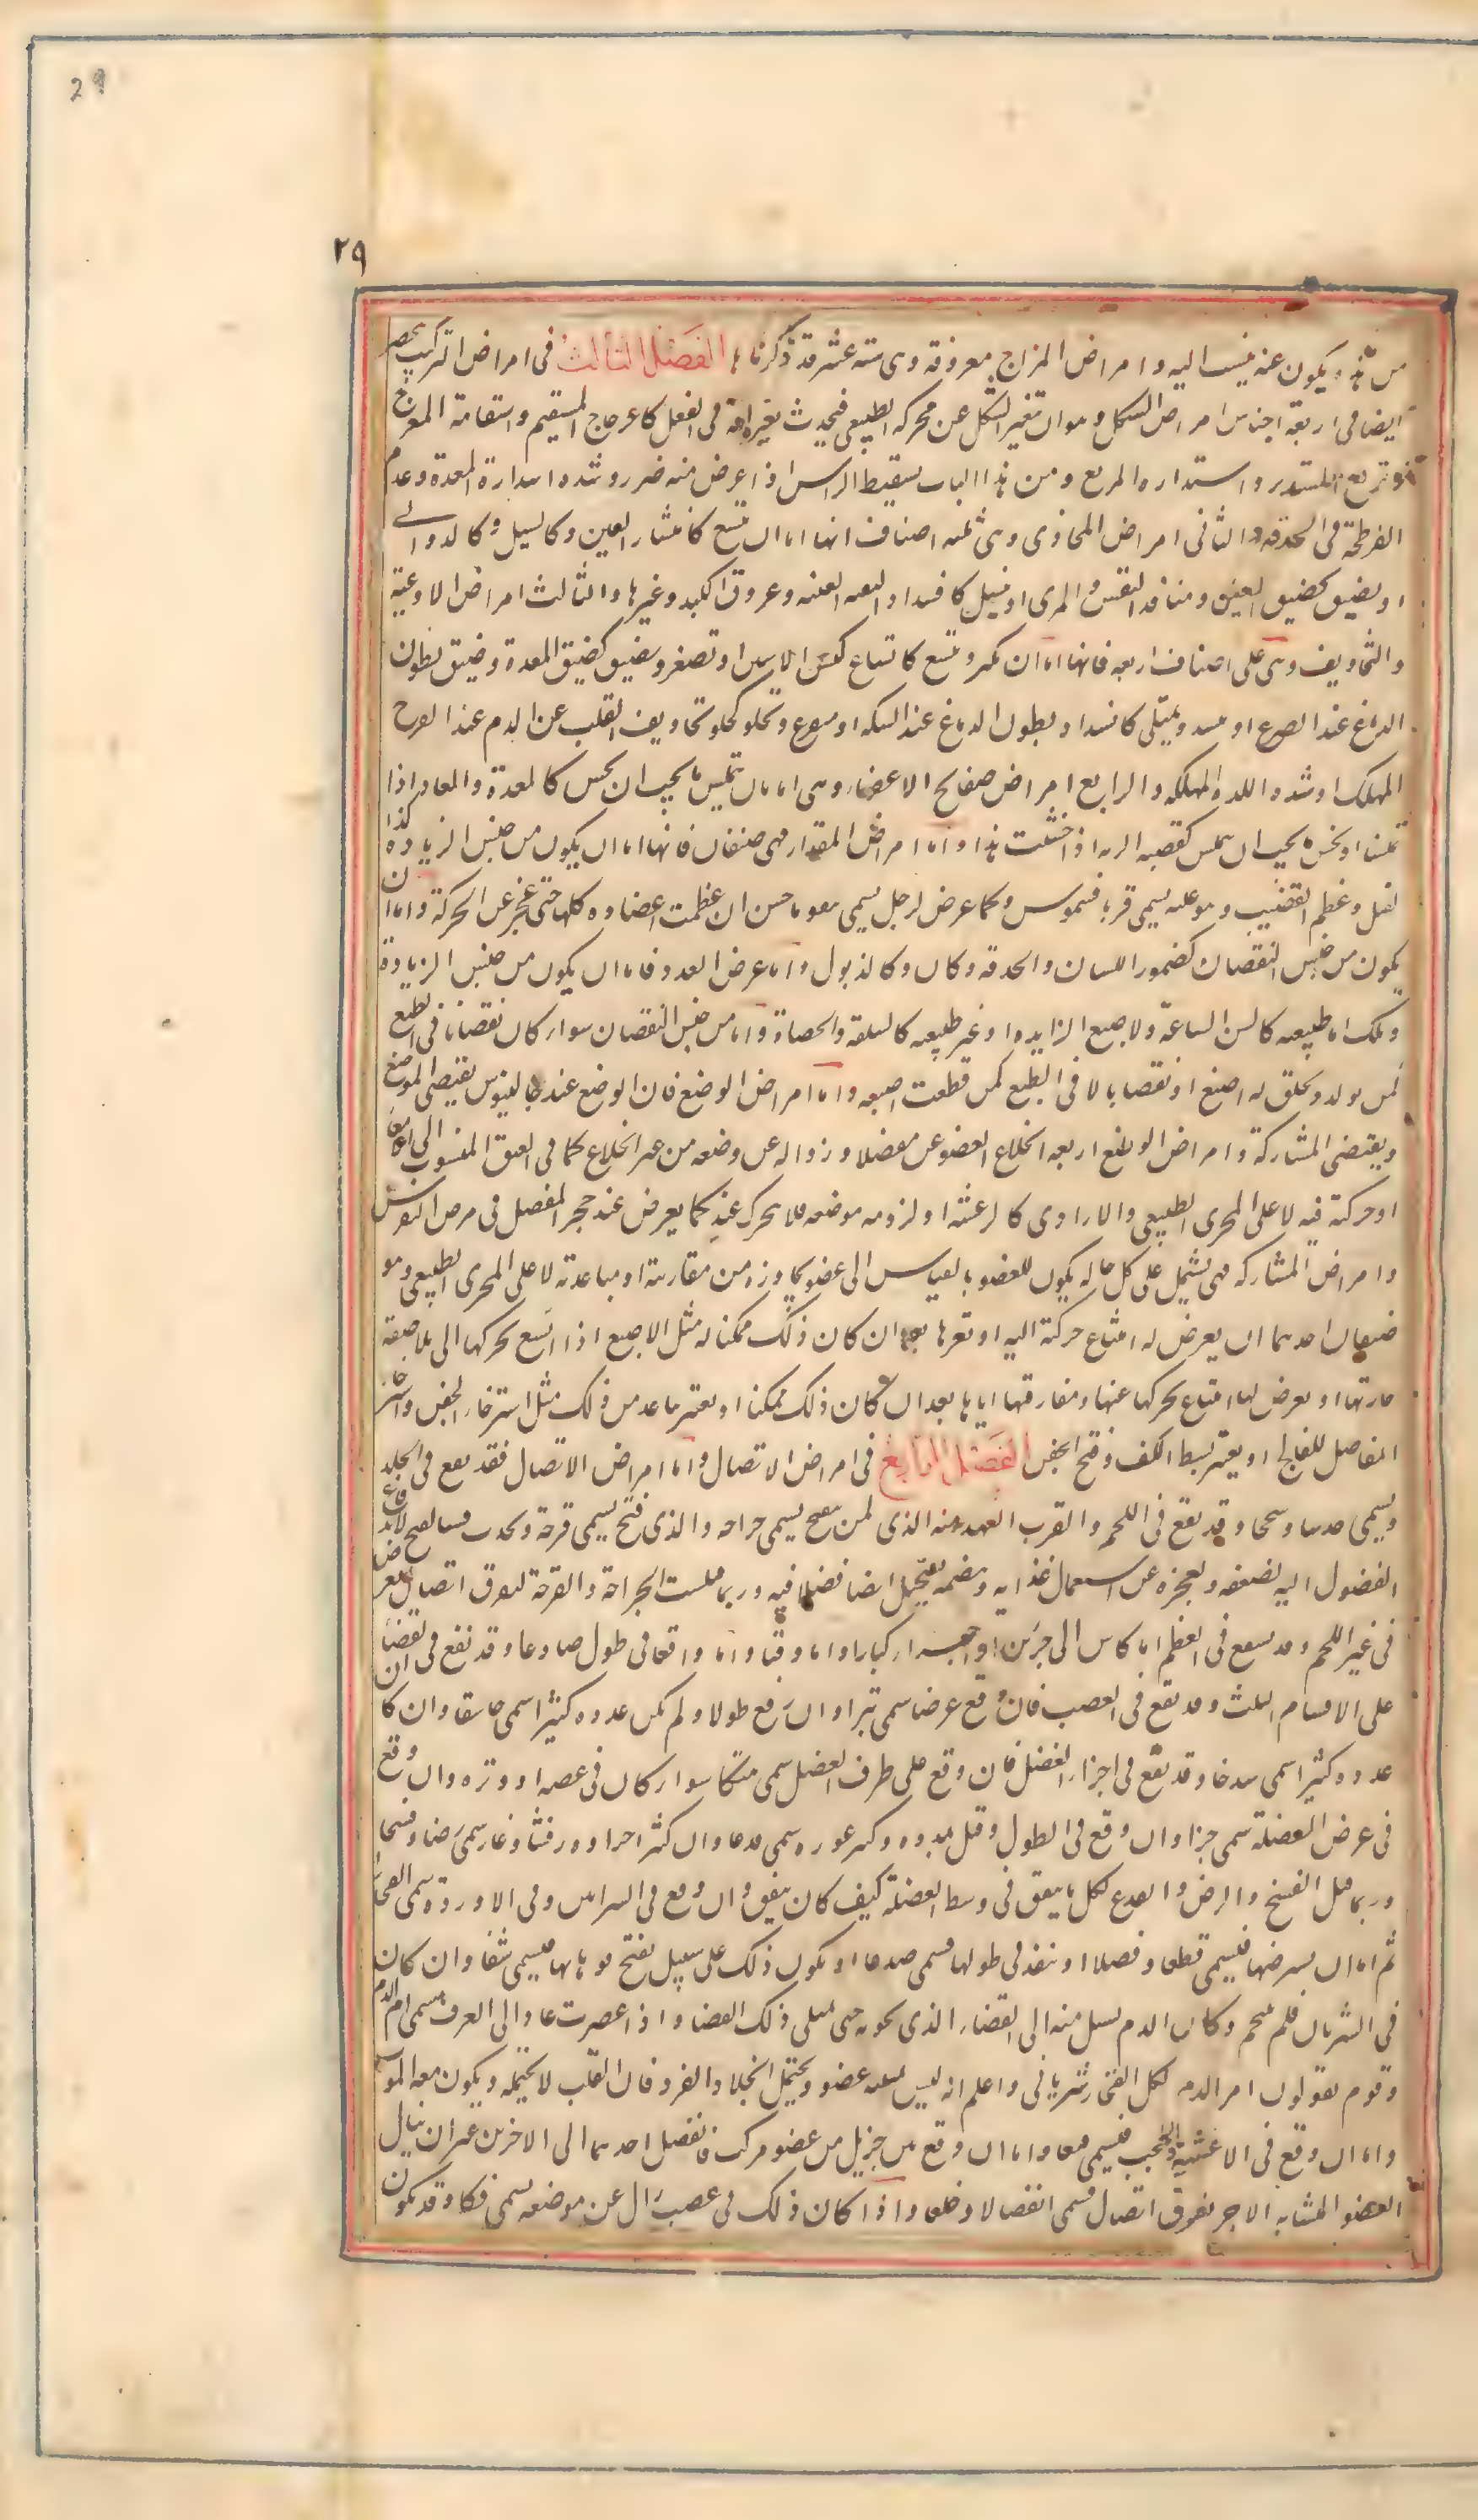 29
٢٩
من هذه ويكون عنه ينسب اليه وامراض المزاج معروفة وهى ستة عشر قد ذكرناها الفصل الثالث فى امراض التركيب
ايضا فى اربعة اجناس امراض الشكل وهو ان تتغير الشكل عن مجراه الطبيعى فيحدث تغيره افة فى الفعل كاعوجاج المستقيم واستقامة المعوج
وتربع المستدير واستداره المربع ومن هذا الباب سفيط الراس اذا عرض منه ضرر وشده استدارة المعدة وعدم
الفرطحة فى الحدقه والثانى امراض المجارى وهى ثلثه اصناف انها اما ان تتسع كانتشار العين وكالسبل وكالدوالى
او يضيق كضيق العين ومنافذ النفس والمرى او كانسداد العنبيه وعروق الكبد وغيرها والثالث امراض الاوعية
والتجاويف وهى على اصناف اربعه فانها اما ان تكبر وتتسع كاتساع كيس الانثيين او تصغر وتضيق كضيق المعدة وضيق بطون
الدماغ عند الصرع او يسد ويمتلى كانسداد بطون الدماغ عند السكته او يستفرع وتخلو كخلو تجاويف القلب عن الدم عند الفرح
المهلك او شده اللذه المهلكه والرابع امراض صفايح الاعضاء وهى اما بان تتملس ما يجب ان يخشن كالمعدة والمعاء اذا
تملسا او يخشن ما يجب ان يملس كقصبه الريه اذا خشنت هذا واما امراض المقدار فهى صنفان فانها اما ان يكون من جنس الزياده كداء
الفيل وعظم القضيب وهو عله يسمى فريافسموس وكما عرض لرجل يسمى ان عظمت اعضاوه كلها حتى عجز عن الحركة واما ان
يكون من جنس النقصان كضمور اللسان والحدقه وكالذبول واما مرض العدد فاما ان يكون من جنس الزيادة
وتلك اما طبيعيه كالسن الشاغية والاصبع الزايده او غير طبيعيه كالسلعه والحصاة واما من جنس النقصان سواء كان نقصانا فى الطبع
كمن يولد ولم يخلق له اصبع او نقصانا لا فى الطبع كمن قطعت اصبعه واما امراض الوضع فان الوضع عند جالينوس يقتضى الموضع
ويقتضى المشاركة وامراض الوضع اربعه انخلاع العضو عن مفصله او زواله عن وضعه من غير انخلاع كما فى الفتق المنسوب الى الامعاء
او حركته فيه لا على المجرى الطبيعى والارادى كالرعشه او لزومه موضعه فلا يتحرك عنه كما يعرض عند تحجر المفصل فى مرض النقرس
وامراض المشاركه فهى تشتمل على كل حاله يكون للعضو بالقياس الى عضو يجاوره من مقاربته او مباعدته لا على المجرى الطبيعى وهو
صنفان احدهما ان يعرض له امتناع حركته اليه او تعسرها بعد ان كان ذلك ممكنا له مثل الاصبع اذا امتنع تحركها الى ملاصقة
جارتها او يعرض لها امتناع تحركها عنها ومفارقتها اياها بعد ان كان ذلك ممكنا او تعسر مباعدتها عن ذلك مثل استرخاء الجفن واسترخاء
المفاصل للفالج او تعسر بسط الكف وفتح الجفن الفصل الرابع فى امراض الاتصال واما امراض الاتصال فقد يقع فى الجلد
ويسمى خدشا وسحجا وقد يقع فى اللحم والقريب العهد منه الذى لم يتقيح يسمى جراحه والذى قيح يسمى قرحة ويحدث فيه القيح لاندفاع
الفضول اليه لضعفه ولعجزه عن استعمال غذايه وهضمه فيستحيل ايضا فضلا فيه وربما قيلت الجراحة والقرحة لتفرق اتصال يعرض
فى غير اللحم وقد يقع فى العظم اما كاسرا الى جزئين او اجزاء كبار او اما مفتتا واما واقعا فى طوله صادعا وقد يقع فى الغضاريف
على الاقسام الثلث وقد يقع فى العصب فان وقع عرضا سمى بترا وان وقع طولا ولم يكن عدده كثيرا سمى شقا وان كان
عدده كثيرا سمى شدخا وقد يقع فى اجزاء العضل فان وقع على طرف العضل سمى هتكا سواء كان فى عصبه او وتره وان وقع
فى عرض العضلة سمى جزا وان وقع فى الطول وقل عدده وكبر غوره سمى فدغا وان كثر اجزاوه وفشا وغار سمى رضا وفسخا
وربما قيل الفسخ والرض والفدغ لكل ما يتفق فى وسط العضلة كيف كان يتفق وان وقع فى الشرايين وفى الاوردة سمى انفجارا
ثم اما ان يعرضها فيسمى قطعا وفصلا او ينفذ فى طولها فسمى صدعا او يكون ذلك على سبيل تفتح فوهاتها فيسمى بثقا وان كان
فى الشريان فلم يلتحم وكان الدم يسيل منه الى الفضاء الذى يحويه حتى يمتلى ذلك الفضا واذا عصرت عاد الى العرق سمى ام الدم
وقوم يقولون ام الدم لكل انفجار شريانى واعلم انه ليس كل عضو يحتمل انحلال الفرد فان القلب لا يحتمله ويكون معه الموت
واما ان وقع فى الاغشية والحجب فيسمى فتقا واما ان وقع بين جزئين من عضو مركب فانفصل احدهما الى الاخر من غير ان ينال
العضو المتشابه الاجزاء تفرق اتصال فسمى انفصالا وخلعا واذا كان ذلك فى عصب زال عن موضعه يسمى فكا وقد يكون